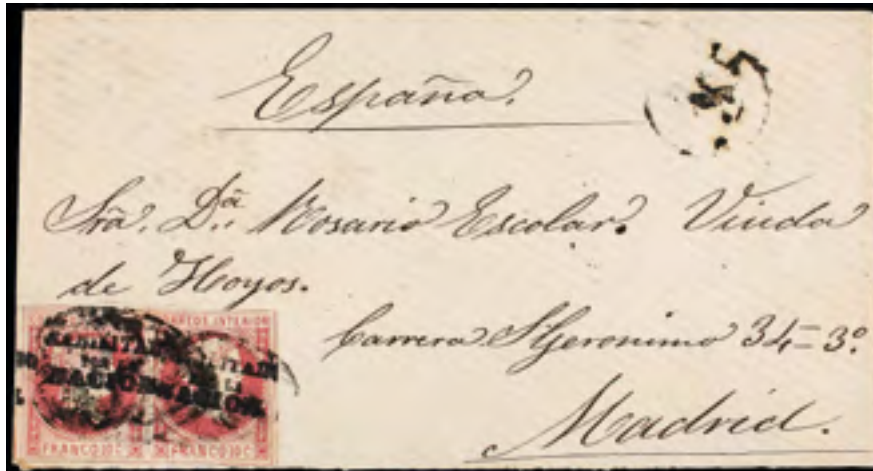 España.
Sra. Dª. Rosario Escolar. Viuda
de Hoyos.
Carrera S. Geronimo 34=3º.
Madrid.
CORREOS INTERIOR
HABILITADO
POR
LA
NACION.
FRANCO
FRANCO